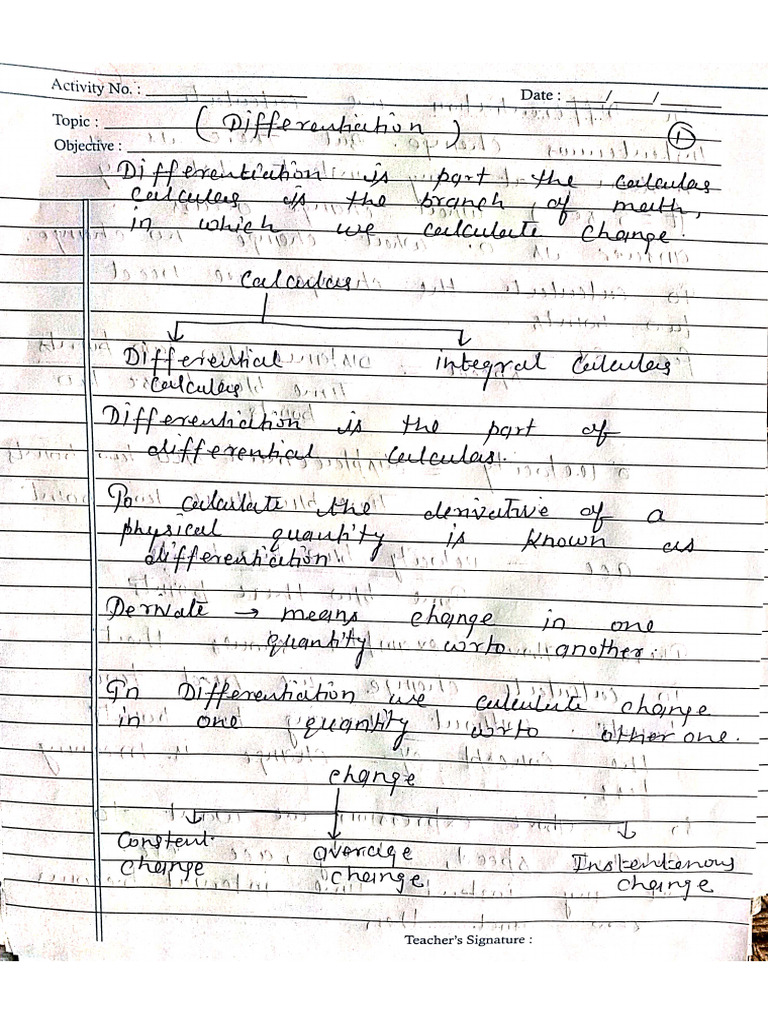 Activity No. :
Date : __/__/__
Topic : ( Differentiation )
①
Objective :
Differentiation is part the calculas
calculas is the branch of math,
in which we calculate change.
Calculas
Differential integral Calculas
calculas
Differentiation is the part of
differential calculas.
To calculate the derivative of a
physical quantity is known as
differentiation
Derivate → means change in one
quantity wrto another.
In Differentiation we calculate change
in one quantity wrto other one.
change
Constent average Instentenous
change change change
Teacher's Signature :